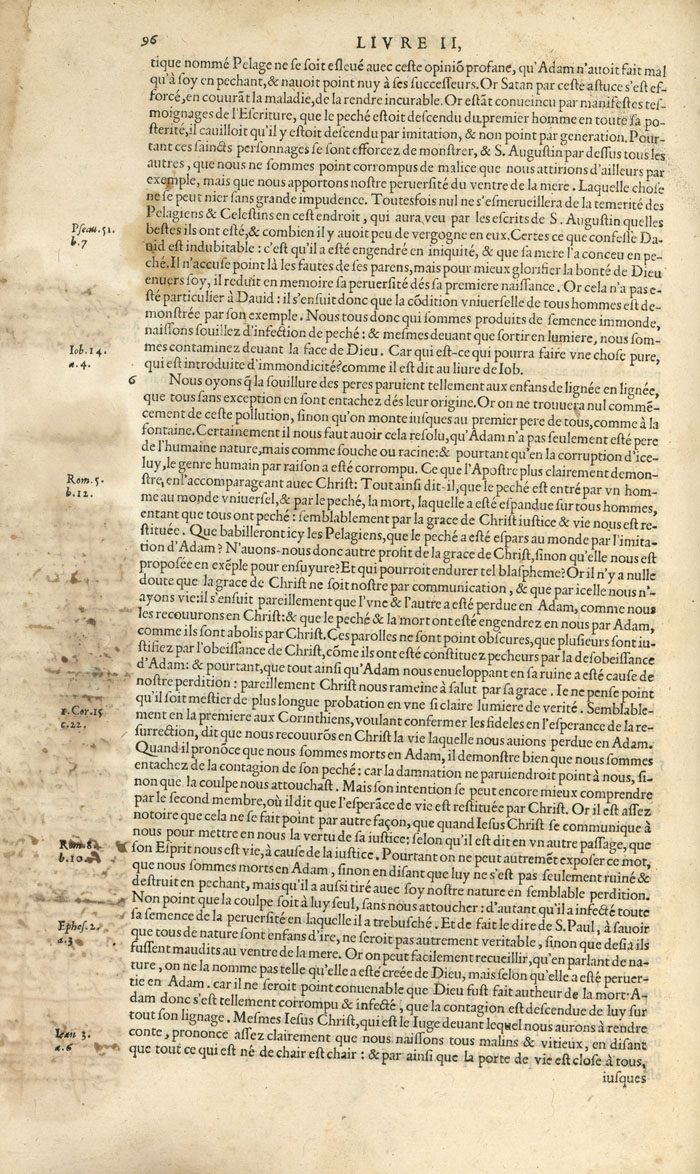 96 LIVRE II,
tique nommé Pelage ne se soit esleué auec ceste opiniõ profane, qu'Adam n'auoit fait mal
qu'à soy en pechant, & nauoit point nuy à ses successeurs. Or Satan par ceste astuce s'est ef-
forcé, en couurãt la maladie, de la rendre incurable. Or estãt conueincu par manifestes tes-
moignages de l'Escriture, que le peché estoit descendu du premier homme en toute sa po-
sterité, il cauilloit qu'il y estoit descendu par imitation, & non point par generation. Pour-
tant ces saincts personnages se sont efforcez de monstrer, & S. Augustin par dessus tous les
autres, que nous ne sommes point corrompus de malice que nous attirions d'ailleurs par
exemple, mais que nous apportons nostre peruersité du ventre de la mere. Laquelle chose
ne se peut nier sans grande impudence. Toutesfois nul ne s'esmerueillera de la temerité des
Pelagiens & Celestins en cest endroit, qui aura veu par les escrits de S. Augustin quelles
Pseau. 51.
bestes ils ont esté, & combien il y auoit peu de vergogne en eux. Certes ce que confesse Da-
b. 7
uid est indubitable : c'est qu'il a esté engendré en iniquité, & que sa mere l'a conceu en pe-
ché. Il n'accuse point là les fautes de ses parens, mais pour mieux glorifier la bonté de Dieu
enuers soy, il reduit en memoire sa peruersité dés sa premiere naissance. Or cela n'a pas e-
sté particulier à Dauid : il s'ensuit donc que la cõdition vniuerselle de tous hommes est de-
monstrée par son exemple. Nous tous donc qui sommes produits de semence immonde,
naissons souillez d'infection de peché : & mesmes deuant que sortir en lumiere, nous som-
Iob. 14.
mes contaminez deuant la face de Dieu. Car qui est-ce qui pourra faire vne chose pure,
a. 4.
qui est introduite d'immondicité? comme il est dit au liure de Iob.
6 Nous oyons q̃ la souillure des peres paruient tellement aux enfans de lignée en lignée,
que tous sans exception en sont entachez dés leur origine. Or on ne trouuera nul commẽ-
cement de ceste pollution, sinon qu'on monte iusques au premier pere de tous, comme à la
fontaine. Certainement il nous faut auoir cela resolu, qu'Adam n'a pas seulement esté pere
de l'humaine nature, mais comme souche ou racine: & pourtant qu'en la corruption d'ice-
luy, le genre humain par raison a esté corrompu. Ce que l'Apostre plus clairement demon-
Rom. 5.
stre, en l'accomparageant auec Christ: Tout ainsi dit-il, que le peché est entré par vn hom-
b. 12.
me au monde vniuersel, & par le peché, la mort, laquelle a esté espandue sur tous hommes,
entant que tous ont peché : semblablement par la grace de Christ iustice & vie nous est re-
stituée. Que babilleront icy les Pelagiens, que le peché a esté espars au monde par l'imita-
tion d'Adam ? N'auons-nous donc autre profit de la grace de Christ, sinon qu'elle nous est
proposée en exẽple pour ensuyure? Et qui pourroit endurer tel blaspheme? Or il n'y a nulle
doute que la grace de Christ ne soit nostre par communication, & que par icelle nous n'-
ayons vie: il s'ensuit pareillement que l'vne & l'autre a esté perdue en Adam, comme nous
les recouurons en Christ: & que le peché & la mort ont esté engendrez en nous par Adam,
comme ils sont abolis par Christ. Ces parolles ne sont point obscures, que plusieurs sont iu-
stifiez par l'obeissance de Christ, cõme ils ont esté constituez pecheurs par la desobeissance
d'Adam: & pourtant, que tout ainsi qu'Adam nous enueloppant en sa ruine a esté cause de
nostre perdition : pareillement Christ nous rameine à salut par sa grace. Ie ne pense point
qu'il soit mestier de plus longue probation en vne si claire lumiere de verité. Semblable-
1. Cor. 15
ment en la premiere aux Corinthiens, voulant confermer les fideles en l'esperance de la re-
c. 22.
surrection, dit que nous recouurõs en Christ la vie laquelle nous auions perdue en Adam.
Quand il pronõce que nous sommes morts en Adam, il demonstre bien que nous sommes
entachez de la contagion de son peché: car la damnation ne paruiendroit point à nous, si-
non que la coulpe nous attouchast. Mais son intention se peut encore mieux comprendre
par le second membre, où il dit que l'esperãce de vie est restituée par Christ. Or il est assez
notoire que cela ne se fait point par autre façon, que quand Iesus Christ se communique à
nous pour mettre en nous la vertu de sa iustice: selon qu'il est dit en vn autre passage, que
Rom. 8.
son Esprit nous est vie, à cause de la iustice. Pourtant on ne peut autremẽt exposer ce mot,
b. 10.
que nous sommes morts en Adam, sinon en disant que luy ne s'est pas seulement ruiné &
destruit en pechant, mais qu'il a aussi tiré auec soy nostre nature en semblable perdition.
Non point que la coulpe soit à luy seul, sans nous attoucher : d'autant qu'il a infecté toute
sa semence de la peruersité en laquelle il a trebusché. Et de fait le dire de S. Paul, à sauoir
Ephes. 2.
que tous de nature sont enfans d'ire, ne seroit pas autrement veritable, sinon que desia ils
a. 3
fussent maudits au ventre de la mere. Or on peut facilement recueillir, qu'en parlant de na-
ture, on ne la nomme pas telle qu'elle a esté creée de Dieu, mais selon qu'elle a esté peruer-
tie en Adam. car il ne seroit point conuenable que Dieu fust fait autheur de la mort. A-
dam donc s'est tellement corrompu & infecté, que la contagion est descendue de luy sur
tout son lignage. Mesmes Iesus Christ, qui est le Iuge deuant lequel nous aurons à rendre
Iean 3.
conte, prononce assez clairement que nous naissons tous malins & vitieux, en disant
a. 6
que tout ce qui est né de chair est chair : & par ainsi que la porte de vie est close à tous,
iusques